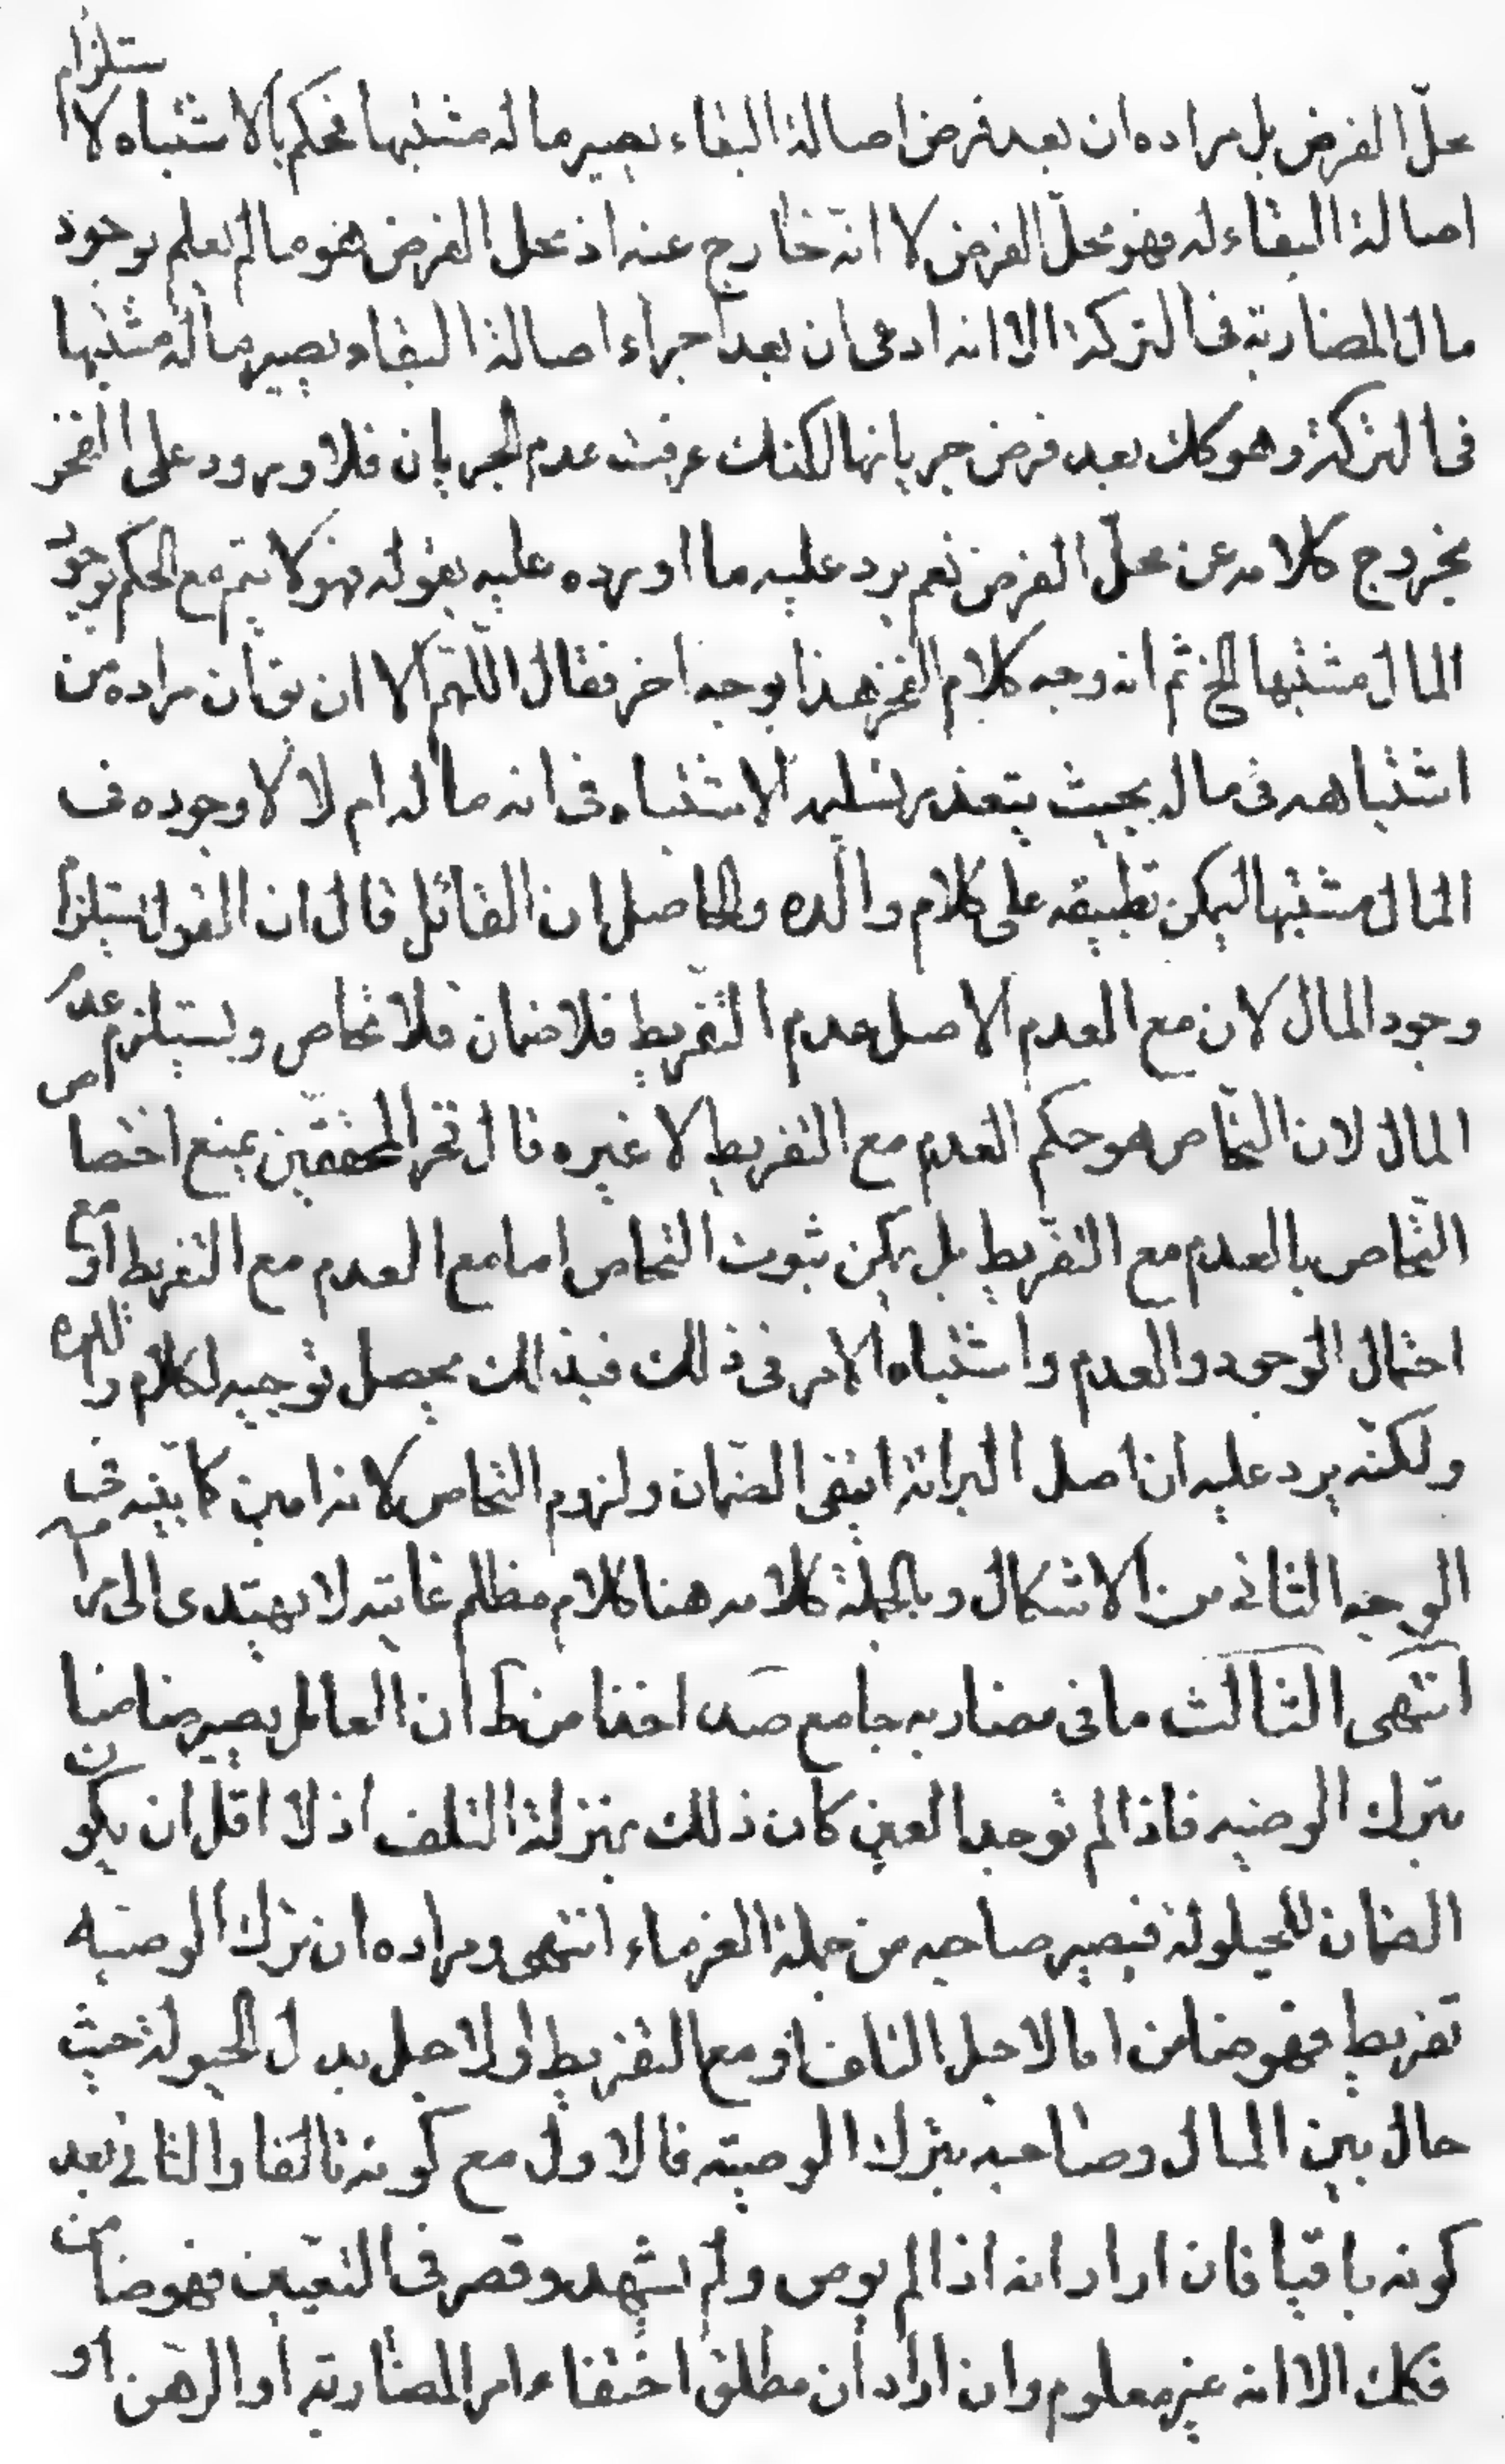 محلّ الفرض بل مراده ان بعد فرض اصالة البقاء يصير ماله مشتبها فحكم بالاشتباه لاستلزام
اصالة البقاء له فهو محلّ الفرض لا انّه خارج عنه اذ محل الفرض هو ما لم يعلم بوجود
مال المضاربة فى التركة الا انه ادعى ان بعد اجراء اصالة البقاء يصير ماله مشتبها
فى التركة وهو كك بعد فرض جريانها لكنك عرفت عدم الجريان فلا ورود على الفخر
بخروج كلامه عن محلّ الفرض نعم يرد عليه ما اورده عليه بقوله فهو لا يتم مع الحكم بوجود
المال مشتبها الخ ثم انه وجه كلام الفخر هذا بوجه اخر فقال اللّهم الا ان يق ان مراده من
اشتباهه فى ماله بحيث يتعذر تسليمه الاشتباه فى انه ماله ام لا لا وجوده ف
المال مشتبها ليمكن تطبيقه على كلام والده والحاصل ان القائل قال ان القول يستلزم
وجود المال لان مع العدم الاصل عدم التفريط فلا ضمان فلا تحاص ويستلزم عدم
المال لان التحاص هو حكم العدم مع التفريط لا غيره قال فخر المحققين بمنع اختصاص
التّحاص بالعدم مع التفريط بل يمكن ثبوت التحاص اما مع العدم مع التفريط او مع
احتمال الوجود والعدم واشتباه الامر فى ذلك فبذالك يحصل توجيه لكلام والده
ولكنّه يرد عليه ان اصل البرائة ينفى الضمان ولزوم التحاص لانه امين كما بيّنه فى
الوجه الثانى من الاشكال وبالجملة كلامه هنا كلام مظلم غايته لا يهتدى الى مرامه
انتهى الثالث ما فى مضاربه جامع صد اخذا من ط ان العامل يصير ضامنا
بترك الوصيه فاذا لم توجد العين كان ذلك بمنزلة التلف اذ لا اقل ان يكون
الضمان للحيلولة فيصير صاحبه من جملة الغرماء انتهى ومراده ان ترك الوصيه
تفريط فهو ضامن اما لاجل التلف او مع التفريط او لاجل بدل الحيولة حيث
حال بين المال وصاحبه بترك الوصيّه فالاول مع كونه تالفا والثانى بعد
كونه باقيا فان اراد انه اذا لم يوص ولم يشهد وقصر فى التعيين فهو ضامن
فكك الا انه غير معلوم وان اراد ان مطلق اختفاء امر المضاربة او الرهن او